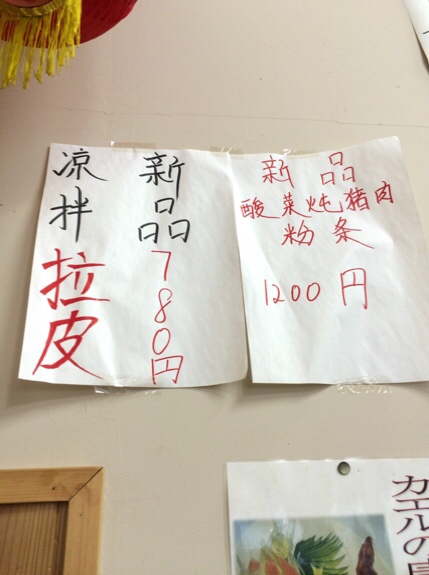 新品
780円
凉拌拉皮
新品
酸菜炖猪肉
粉条
1200円
カエルの